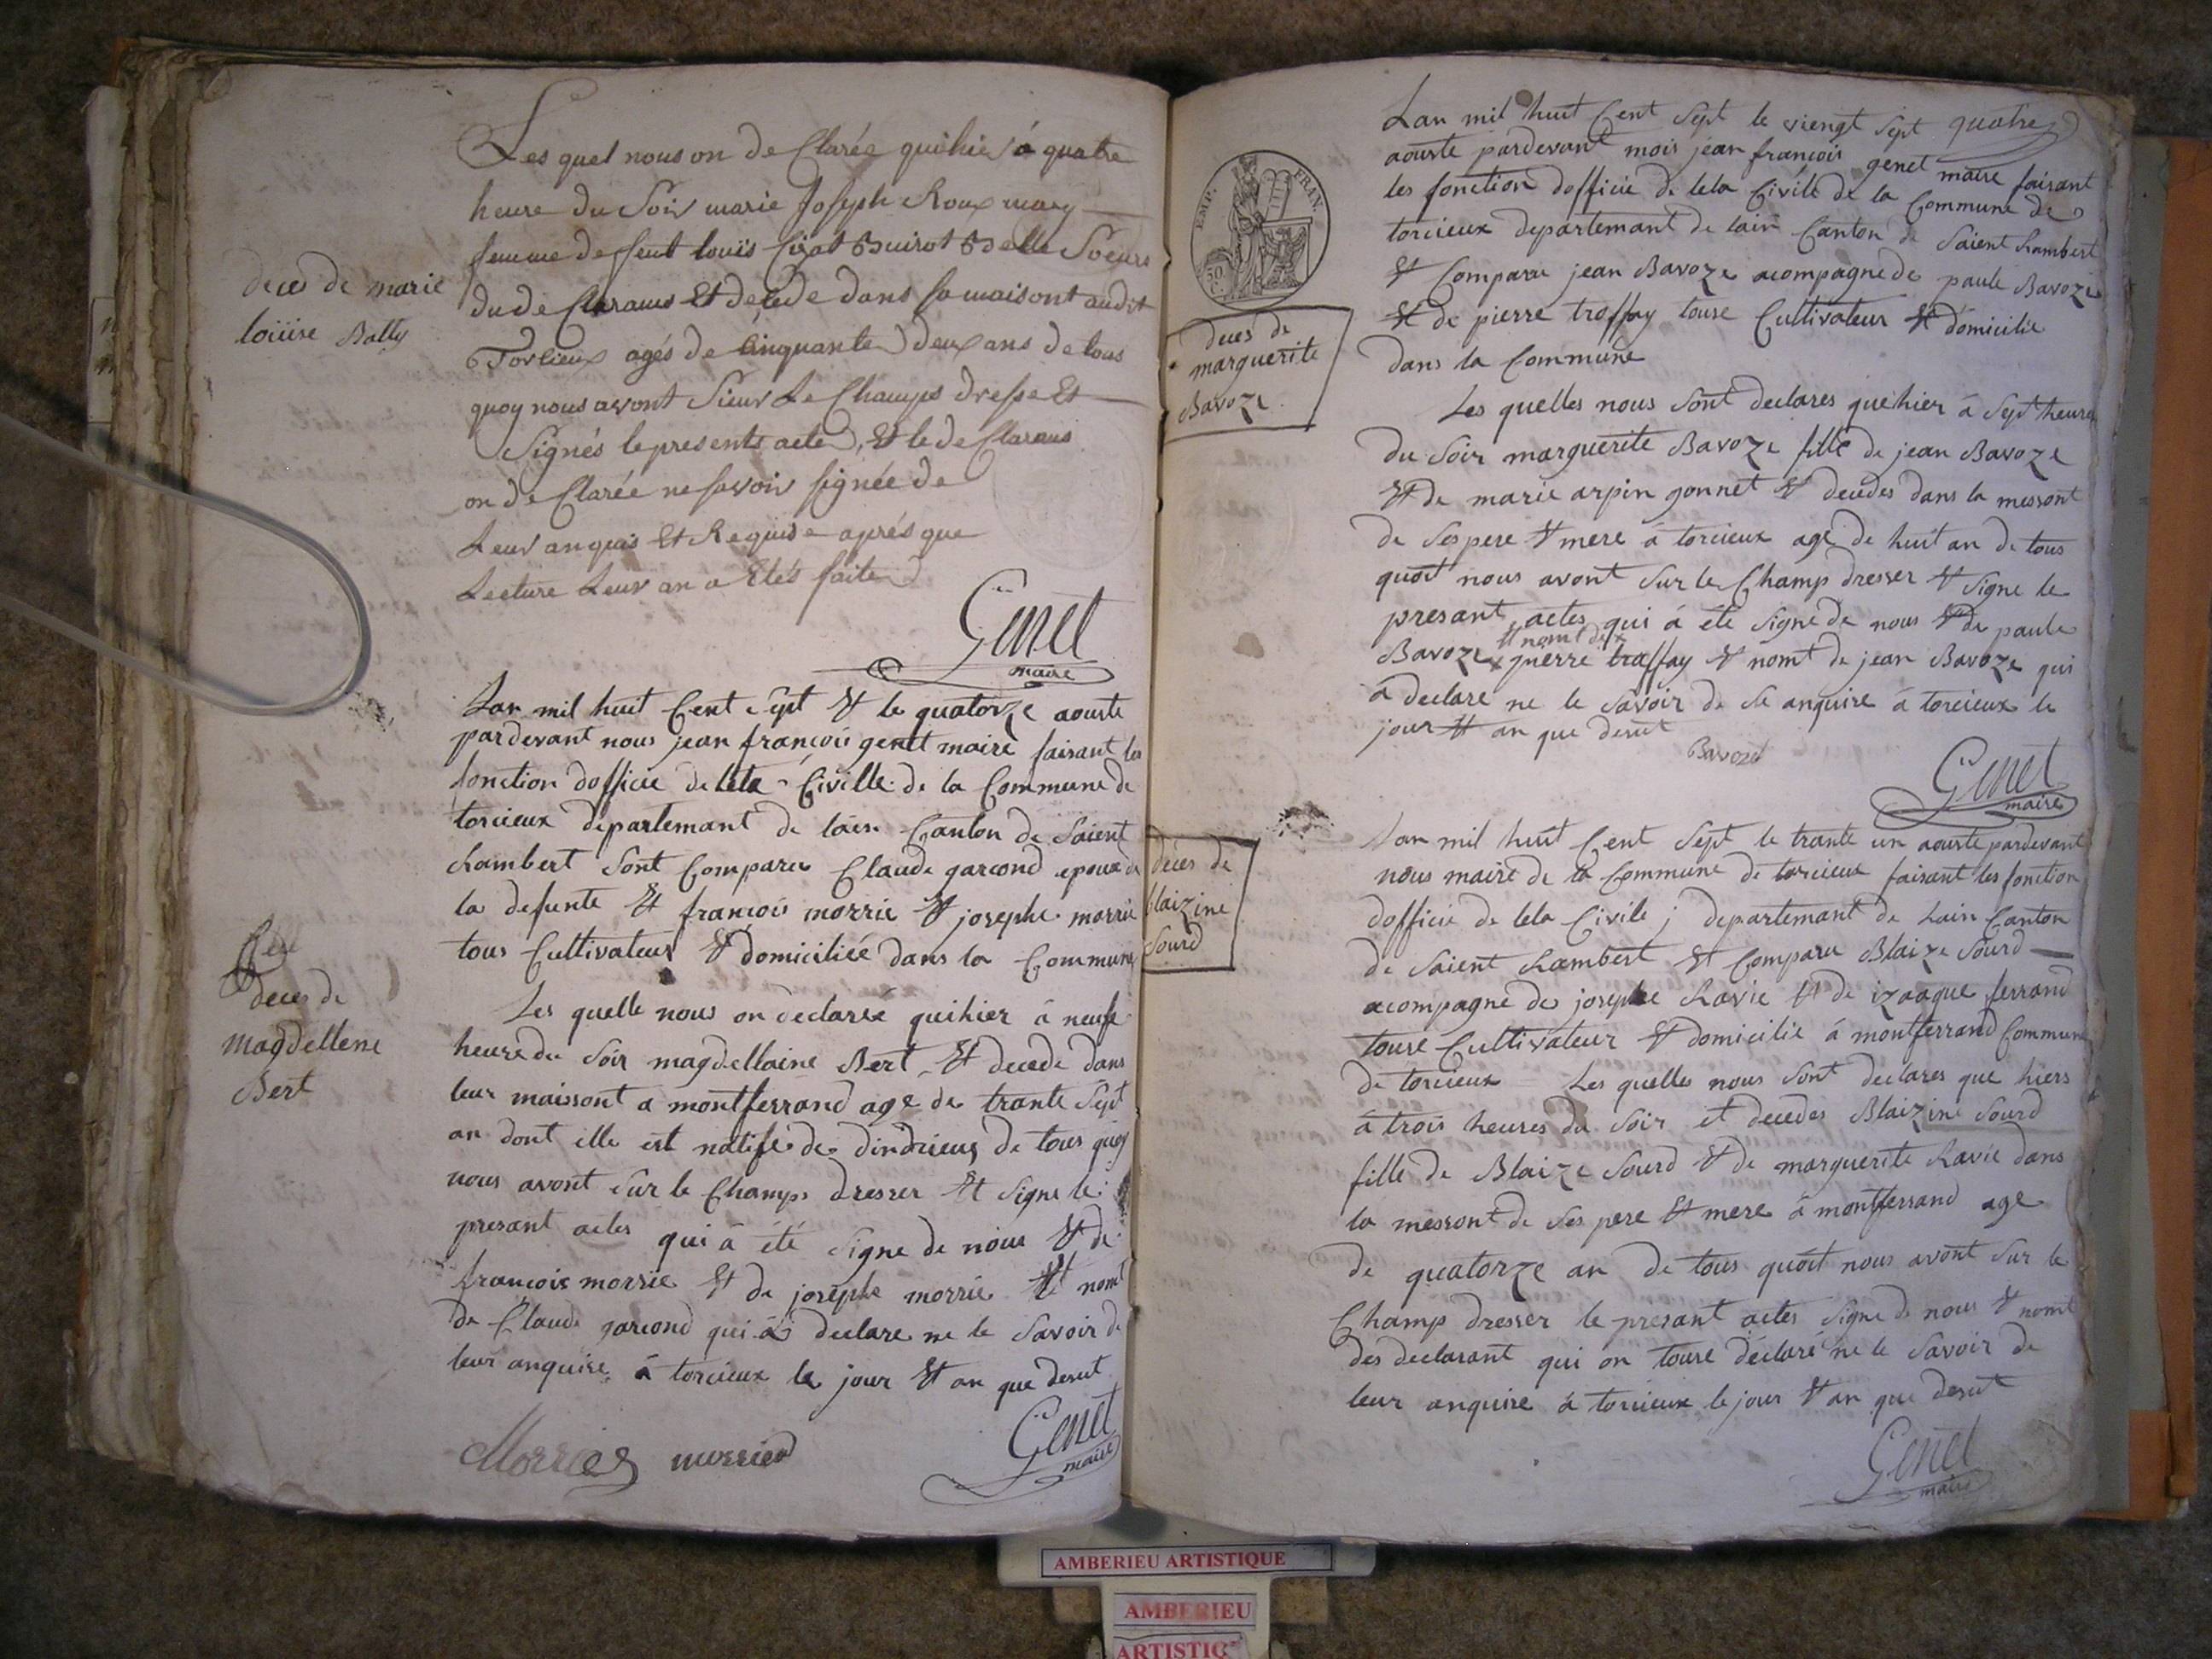 Les quel nous on de Clarée quihier á quatre
heure du Soir marie Joseph Roux marg
femme de feut louïs Cizot Buirot Belle Soeure
du de Clarans Et decede dans sa maisont audit
Torcieux agés de Cinquante deux ans de tous
quoy nous avont Sieur Le Champs dresse Et
Signés le presente acte, Et le de Clarans
on de Clarée ne savoir signée de
Leur anquis Et Requise aprés que
Lecture Leur an a Etés faite
Genet
maire
deces de marie
loüise Bally
Lan mil huit Cent Sept Et le quatorze aouste
pardevant nous jean françois genet maire faisant les
fonction dofficie de leta Civille de la Commune de
torcieux departemant de lain Canton de Saient
Rambert Sont Comparu Claude garcond epoux de
la defunte Et françois morrie Et josephe morrie
tous Cultivateur Et domiciliée dans la Commune
deces de
magdellene
Bert
Les quelle nous on declarée quihier á neufe
heure du Soir magdellaine Bert Et decede dans
leur maissont a montferrand age de trante Sept
an dont elle est natife de dindrieux de tous quoy
nous avont Sur le Champs dresser Et Signe le
presant actes qui á été Signe de nous Et de
françois morrie Et de josephe morrie Et nomt
de Claude garcond qui á declare ne le Savoir de
leur anquire á torcieux le jour Et an que desut
Morrier morried
Genet
maire
EMP. FRAN.
50
Lan mil huit Cent Sept le viengt Sept quatre
aouste pardevant mois jean françois genet maire faisant
les fonction dofficie de leta Civile de la Commune de
torcieux departemant de lain Canton de Saient Rambert
Et Comparu jean Bavoze acompagne de paule Bavoze
Et de pierre troffay touse Cultivateur Et domicilie
dans la Commune
deces de
marguerite
Bavoze
Les quelles nous Sont declares quehier á Sept heures
du Soir marguerite Bavoze fille de jean Bavoze
Et de marie arpin gonnet Et decedes dans la messont
de Ses pere Et mere á torcieux age de huit an de tous
quoit nous avont Sur le Champ dresser Et Signe le
presant actes qui á éte Signe de nous Et de paule
Et nomt de
Bavoze pierre troffay Et nomt de jean Bavoze qui
á declare ne le Savoir de Se anquire á torcieux le
jour Et an que desut
Bavozet
Genet
maire
Lan mil huit Cent Sept le trante un aouste pardevant
nous maire de la Commune de torcieux faisant les fonction
dofficie de leta Civile departemant de Lain Canton
de Saient Rambert Et Comparu Blaize Sourd
acompagne de josephe Ravie Et de izaaque ferrand
touse Cultivateur Et domicilie á montferrand Commune
de torcieux Les quelles nous Sont declares que hiers
á trois heures du Soir et decedes Blaizine Sourd
fille de Blaize Sourd Et de marguerite Ravie dans
la messont de Ses pere Et mere á montferrand age
de quatorze an de tous quoit nous avont Sur le
Champ dresser le presant actes Signe de nous Et nomt
des declarant qui on touse déclaré ne le Savoir de
leur anquire á torcieux le jour Et an que desut
Genet
maire
deces de
blaizine
Sourd
AMBERIEU ARTISTIQUE
AMBERIEU
ARTISTIQ